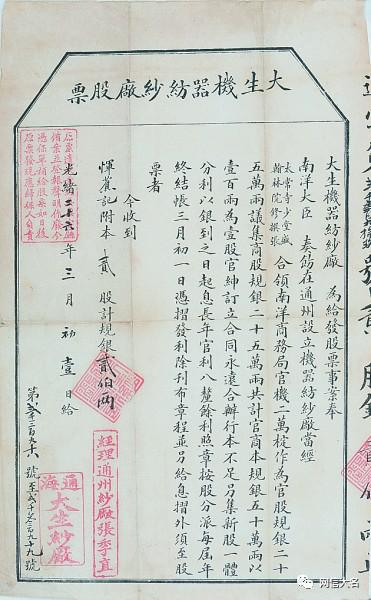 大生機器紡紗廠股票
大生機器紡紗廠　為給發股票事案奉
南洋大臣　奏飭在通州設立機器紡紗廠當經
太常寺少堂盛
翰林院修撰張
合領南洋商務局官機二萬錠作為官股規銀二十
五萬兩議集商股規銀二十五萬兩共計官商本規銀五十萬兩以
壹百兩為壹股官紳訂立合同永遠合辦行本不足另集新股一體
分利以銀到之日起息長年官利八釐餘利照章按股分派每屆年
終結帳三月初一日憑摺發利除刊布章程並另給息摺外須至股
票者
今收到
惲蕉記附本貳股計規銀貳伯兩
光緒二十六年三月初壹日給
經理通州紗廠張季直
通海大生紗廠
网信大名